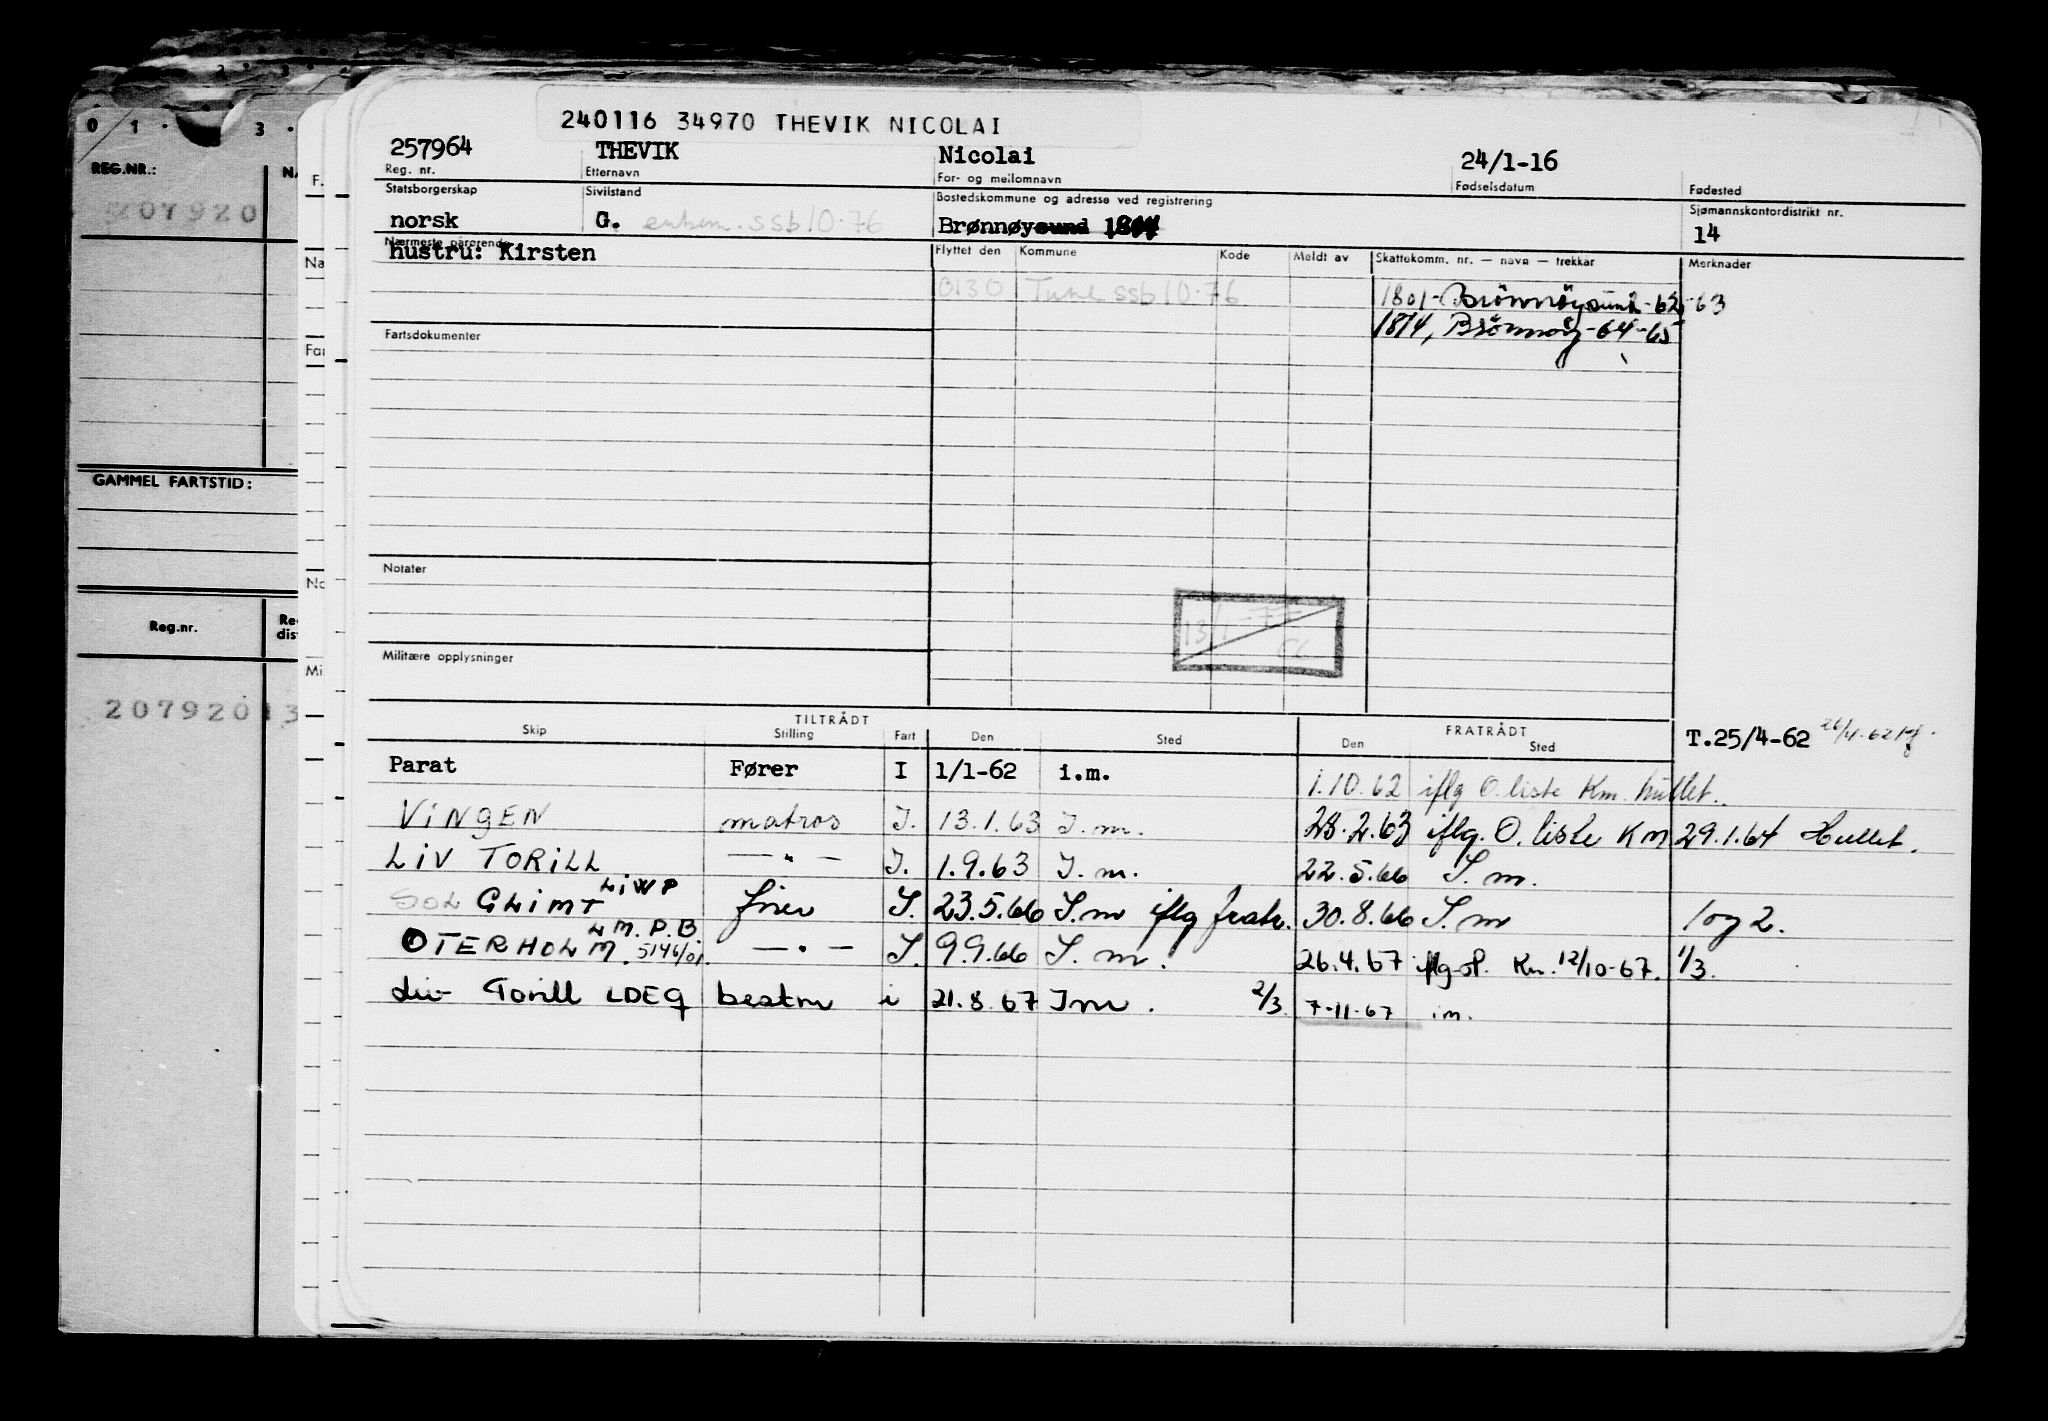 0 1 . 3 .
REG.NR.:
207920
GAMMEL FARTSTID:
Reg.nr.
207920 13
240116 34970 THEVIK NICOLAI
257964 THEVIK Nicolai 24/1-16
Reg. nr. Etternavn For- og mellomnavn Fødselsdatum Fødested
Statsborgerskap Sivilstand Bostedskommune og adresse ved registrering Sjømannskontordistrikt nr.
norsk G. enkem. ssb 10.76 Brønnøysund 14
Nærmeste pårørende Flyttet den Kommune Kode Meldt av Skattekomm. nr. — navn — trekkår Merknader
hustru: Kirsten
0130 Tune ssb 10.76 1801- Brönnöysund -62-63
1814, Brönnöy -64-65
Fartsdokumenter
Notater
13/1-77
Militære opplysninger
TILTRÅDT FRATRÅDT
Skip Stilling Fart Den Sted Den Sted T.25/4-62 26/4-62
Parat Fører I 1/1-62 i.m. 1.10.62 iflg O.liste Km. hullet..
ViNGEN matros I. 13.1.63 I.m. 28.2.63 iflg. O.liste Km 29.1.64 Hullet.
LiV TORiLL — " — I. 1.9.63 I.m. 22.5.66 I.m.
SOL GLiMT LiWP fører I. 23.5.66 I.m iflg fratr. 30.8.66 I.m log 2.
OTERHOLM. LM.P.B 5146/01. — " — I. 9.9.66 I.m. 26.4.67 iflg. Km. 12/10-67. 1/3.
Liv Torill LDEQ bestm i 21.8.67 Im. 2/3 7-11-67 i.m.